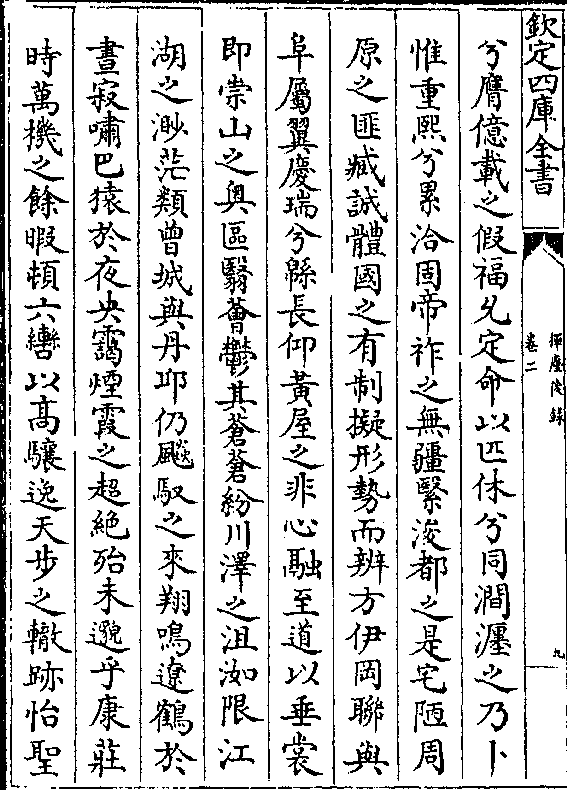 欽定四庫全書
揮麈後錄
卷二
九
兮膺億載之假福允定命以匹休兮同澗瀍之乃卜
惟重熙兮累洽固帝祚之無疆繄浚都之是宅陋周
原之匪臧誠體國之有制擬形勢而辨方伊岡聯與
阜屬翼慶瑞兮緜長仰黃屋之非心融至道以垂裳
即崇山之奧區翳薈鬱其蒼蒼紛川澤之沮洳限江
湖之渺茫類曾城與丹邱仍飈馭之來翔鳴遼鶴於
晝寂嘯巴猿於夜央靄煙霞之超絕殆未邈乎康莊
時萬機之餘暇頓六轡以高驤逸天步之轍跡怡聖